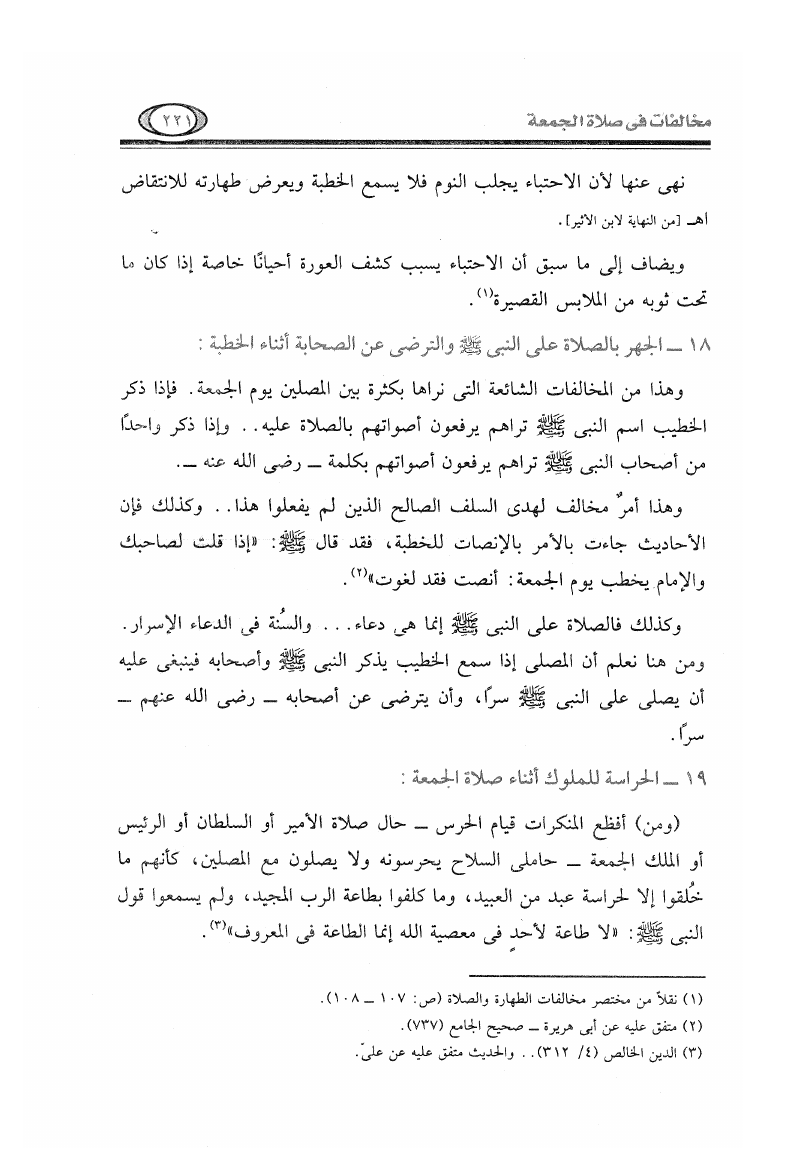 مخالفات فى صلاة الجمعة
٢٢١
نهى عنها لأن الاحتباء يجلب النوم فلا يسمع الخطبة ويعرض طهارته للانتقاض
أهـ [من النهاية لابن الأثير].
ويضاف إلى ما سبق أن الاحتباء يسبب كشف العورة أحيانًا خاصة إذا كان ما
تحت ثوبه من الملابس القصيرة(١).
١٨ ــ الجهر بالصلاة على النبى ﷺ والترضى عن الصحابة أثناء الخطبة :
وهذا من المخالفات الشائعة التى نراها بكثرة بين المصلين يوم الجمعة. فإذا ذكر
الخطيب اسم النبى ﷺ تراهم يرفعون أصواتهم بالصلاة عليه.. وإذا ذكر واحدًا
من أصحاب النبى ﷺ تراهم يرفعون أصواتهم بكلمة ــ رضى الله عنه ــ.
وهذا أمرٌ مخالف لهدى السلف الصالح الذين لم يفعلوا هذا.. وكذلك فإن
الأحاديث جاءت بالأمر بالإنصات للخطبة، فقد قال ﷺ: «إذا قلت لصاحبك
والإمام يخطب يوم الجمعة: أنصت فقد لغوت»(٢).
وكذلك فالصلاة على النبى ﷺ إنما هى دعاء... والسُنة فى الدعاء الإسرار.
ومن هنا نعلم أن المصلى إذا سمع الخطيب يذكر النبى ﷺ وأصحابه فينبغى عليه
أن يصلى على النبى ﷺ سرًا، وأن يترضى عن أصحابه ــ رضى الله عنهم ــ
سرًا.
١٩ ــ الحراسة للملوك أثناء صلاة الجمعة :
(ومن) أفظع المنكرات قيام الحرس ــ حال صلاة الأمير أو السلطان أو الرئيس
أو الملك الجمعة ــ حاملى السلاح يحرسونه ولا يصلون مع المصلين، كأنهم ما
خُلقوا إلا لحراسة عبد من العبيد، وما كلفوا بطاعة الرب المجيد، ولم يسمعوا قول
النبى ﷺ: «لا طاعة لأحدٍ فى معصية الله إنما الطاعة فى المعروف»(٣).
(١) نقلاً من مختصر مخالفات الطهارة والصلاة (ص: ١٠٧ ــ ١٠٨).
(٢) متفق عليه عن أبى هريرة ــ صحيح الجامع (٧٣٧).
(٣) الدين الخالص (٤/ ٣١٢).. والحديث متفق عليه عن علىّ.